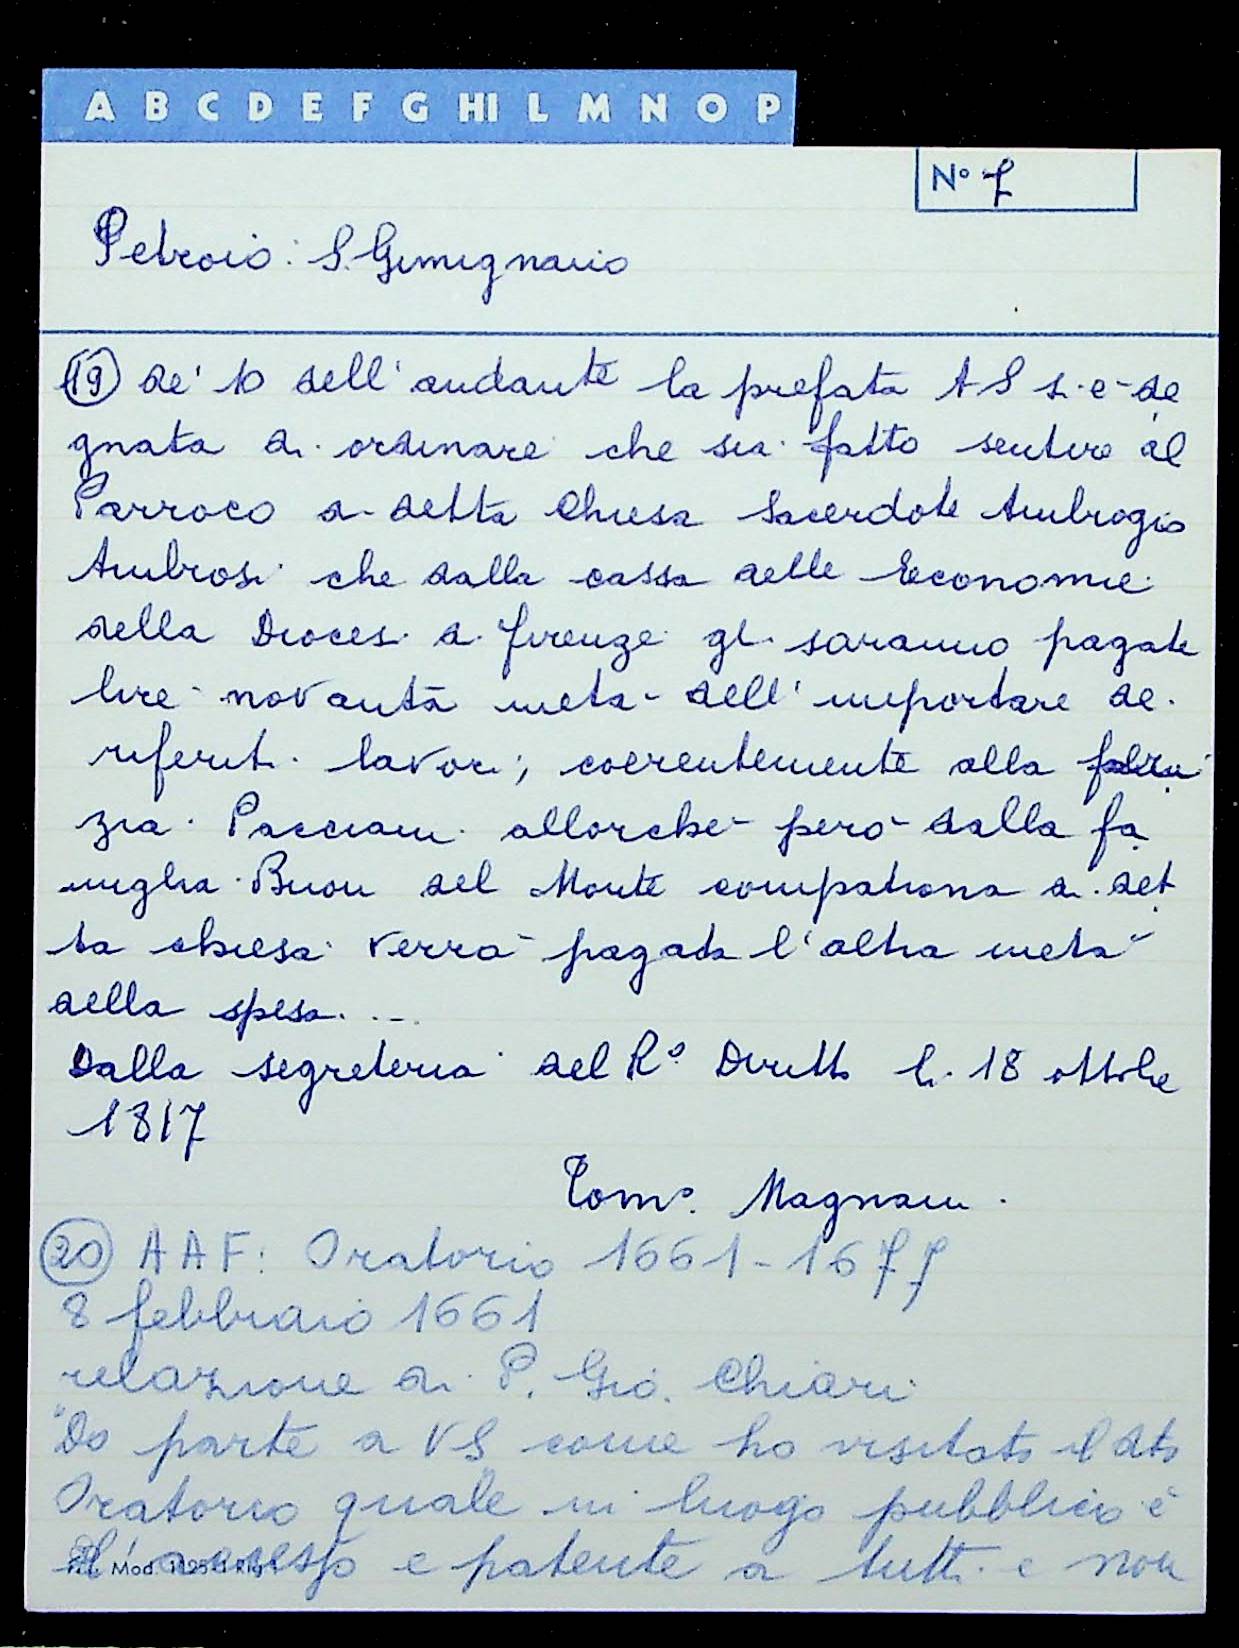 A B C D E F G HI L M N O P
N° 7
Petroio: S. Gimignano
19 de' 10 dell'andante la prefata AS si è de
gnata di ordinare che sia fatto sentire al
Parroco di detta Chiesa Sacerdote Ambrogio
Ambrosi che dalla cassa delle Economie
della Diocesi di Firenze gli saranno pagate
lire novanta metà dell'importare de
riferiti lavori, coerentemente alla
zia Pacciani allorché però dalla fa
miglia Buon del Monte compatrona di det
ta chiesa verrà pagata l'altra metà
della spesa. ...
Dalla segreteria del R° Diritto li 18 ottobre
1817
Tom°. Magnani.
20 AAF: Oratorio 1661-1677
8 febbraio 1661
relazione di P. Gio. Chiari
"Do parte a VS come ho visitato il dto
Oratorio quale in luogo pubblico è
e patente a tutti e non
Mod.